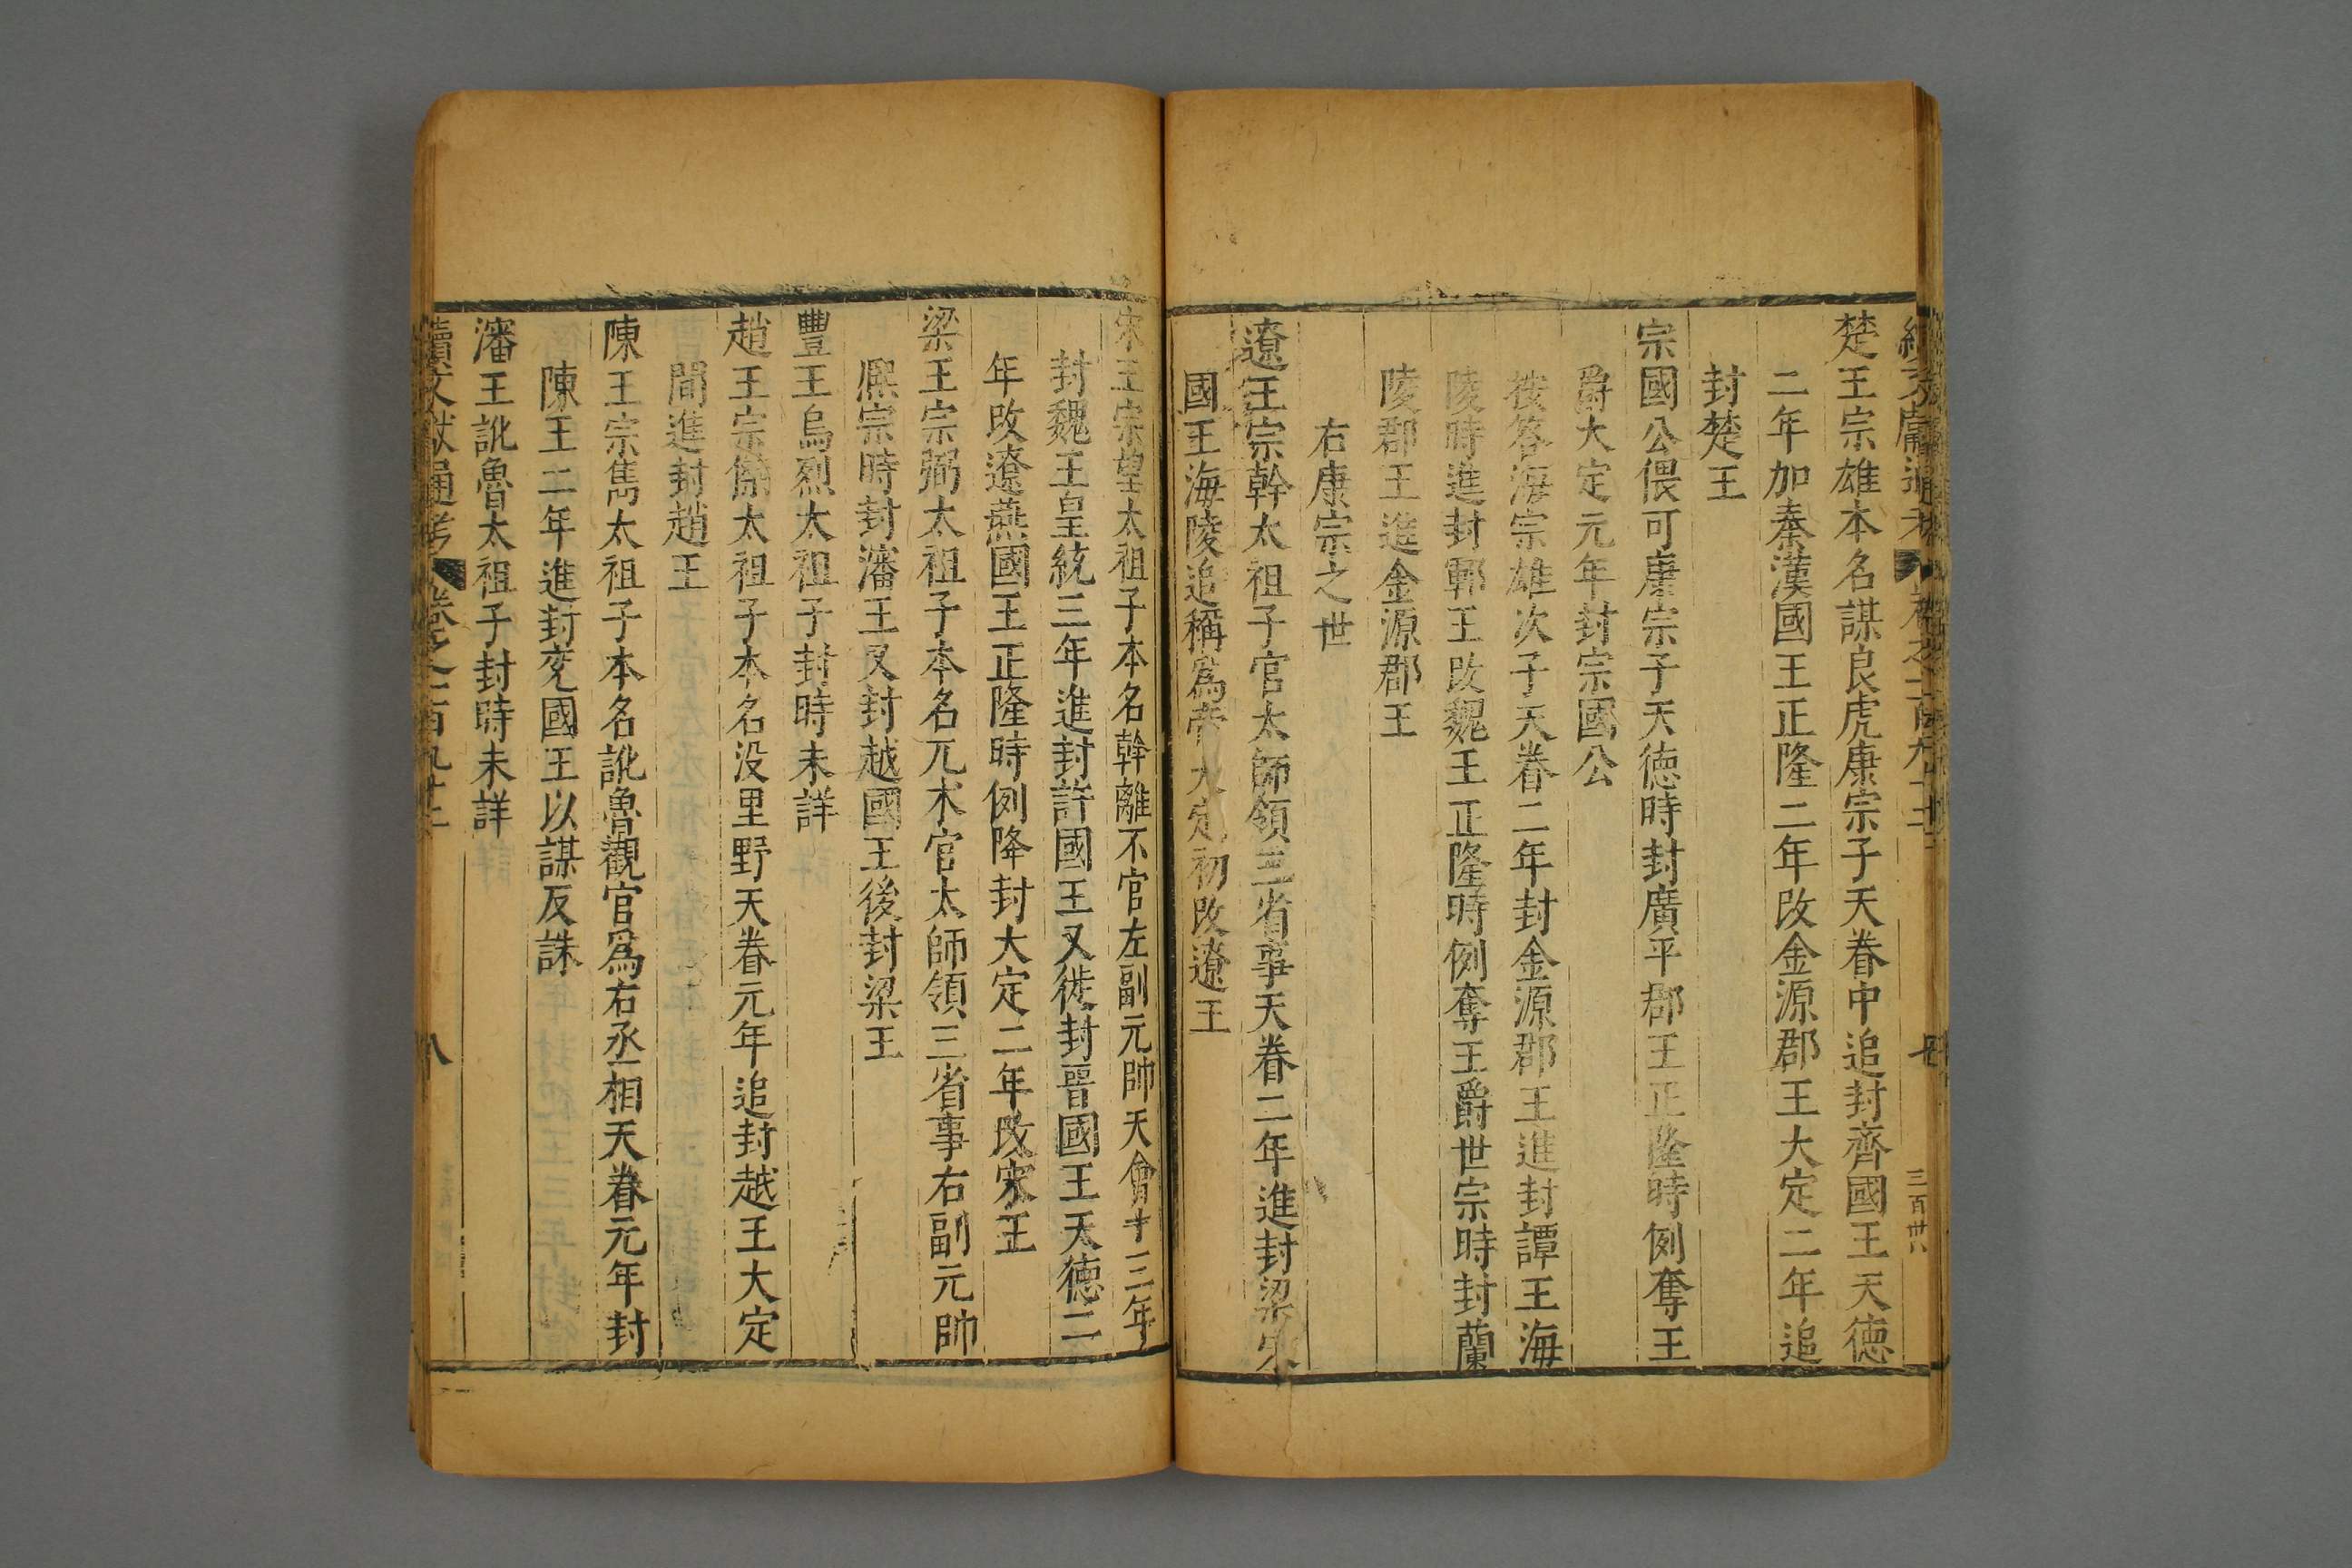 楚王宗雄本名謀良虎康宗子天眷中追封齊國王天德
二年加秦漢國王正隆二年改金源郡王大定二年追
封楚王
宗國公偎可康宗子天德時封廣平郡王正隆時例奪王
爵大定元年封宗國公
按答海宗雄次子天眷二年封金源郡王進封譚王海
陵時進封鄆王改魏王正隆時例奪王爵世宗時封蘭
陵郡王進金源郡王
右康宗之世
遼王宗幹太祖子官太師領三省事天眷二年進封梁宋
國王海陵追稱爲帝大定初改遼王
宋王宗望太祖子本名斡離不官左副元帥天會十三年
封魏王皇統三年進封許國王又徙封晉國王天德二
年改遼燕國王正隆時例降封大定二年改宋王
梁王宗弼太祖子本名兀朮官太師領三省事右副元帥
熈宗時封瀋王又封越國王後封梁王
豐王烏烈太祖子封時未詳
趙王宗傑太祖子本名没里野天眷元年追封越王大定
間進封趙王
陳王宗雋太祖子本名訛魯觀官爲右丞相天眷元年封
陳王二年進封兗國王以謀反誅
瀋王訛魯太祖子封時未詳
續文獻通考 卷之一百九十二 八
三百卅八